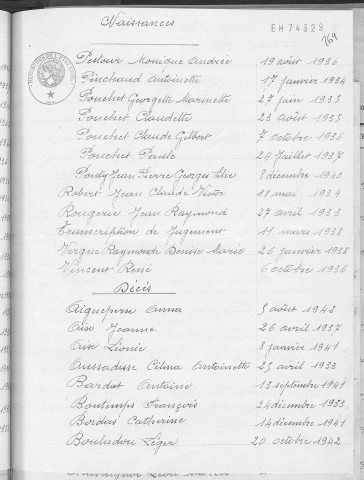 Naissances
EH74329
769
Pestour Monique Andrée 19 août 1936
Pinchaud Antoinette 17 janvier 1934
Ponchet Georgette Marinette 27 juin 1935
Ponchet Claudette 23 août 1935
Ponchet Claude Gilbert 7 octobre 1936
Ponchet Paule 24 Juillet 1937
Ponty Jean Pierre Georges Elie 8 décembre 1940
Robert Jean Claude Victor 18 mai 1934
Rougerie Jean Raymond 27 avril 1933
Transcription de Jugement 11 mars 1938
Vergne Raymonde Denise Marie 26 janvier 1938
Vincent René 6 octobre 1936
Décès
Aigueperse Anna 5 août 1942
Aise Jeanne 26 avril 1937
Aise Léonie 8 janvier 1941
Aussadisse Célina Antoinette 25 avril 1933
Bardet Antoine 13 septembre 1941
Bontemps François 24 décembre 1933
Bordas Catherine 14 décembre 1941
Bouladou Léger 20 octobre 1942